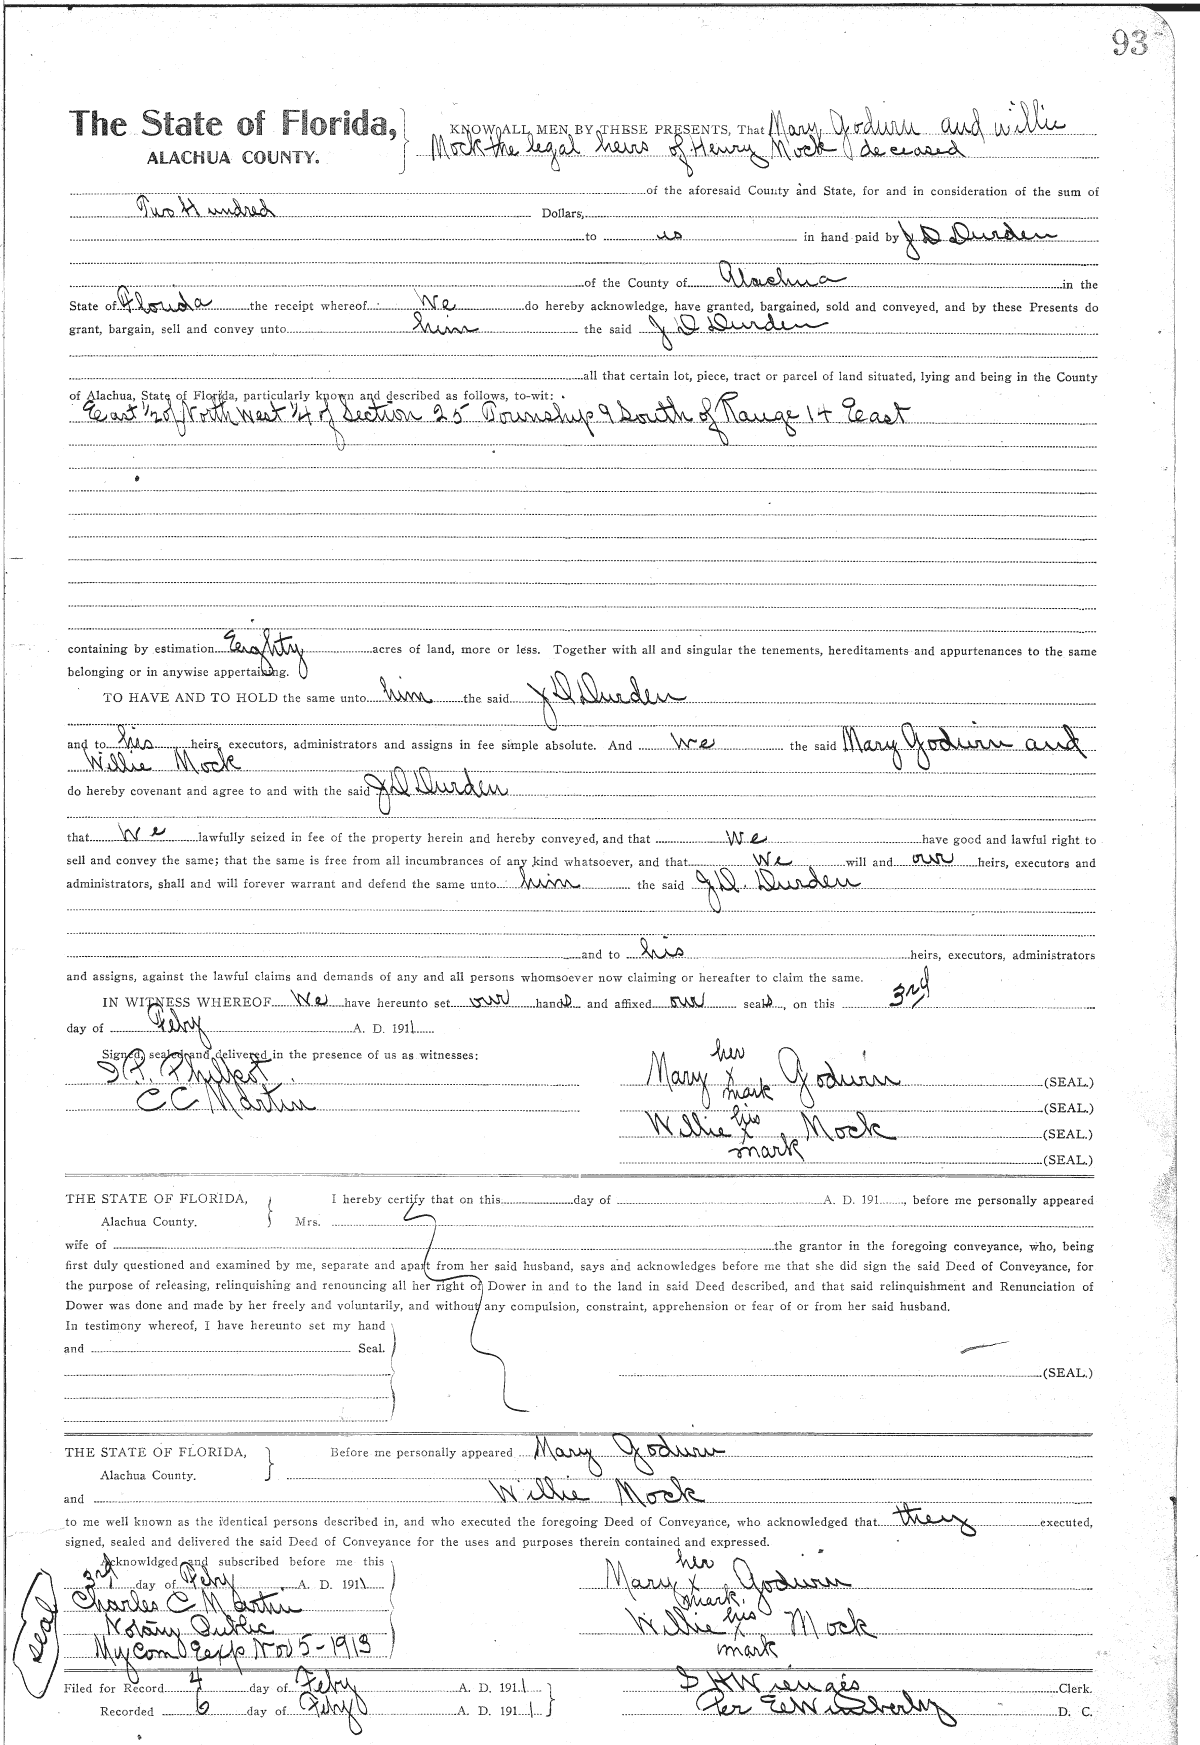 93
The State of Florida, KNOW ALL MEN BY THESE PRESENTS, That Mary Godwin and willie
ALACHUA COUNTY. Mock the legal heirs of Henry Mock deceased
of the aforesaid County and State, for and in consideration of the sum of
Two Hundred Dollars,
to us in hand paid by J D Durden
of the County of Alachua in the
State of Florida the receipt whereof We do hereby acknowledge, have granted, bargained, sold and conveyed, and by these Presents do
grant, bargain, sell and convey unto him the said J D Durden
all that certain lot, piece, tract or parcel of land situated, lying and being in the County
of Alachua, State of Florida, particularly known and described as follows, to-wit:
East 1/2 of North West 1/4 of Section 25 Township 9 South of Range 14 East
containing by estimation Eighty acres of land, more or less. Together with all and singular the tenements, hereditaments and appurtenances to the same
belonging or in anywise appertaining.
TO HAVE AND TO HOLD the same unto him the said J D Durden
and to his heirs, executors, administrators and assigns in fee simple absolute. And we the said Mary Godwin and
Willie Mock
do hereby covenant and agree to and with the said J D Durden
that We lawfully seized in fee of the property herein and hereby conveyed, and that We have good and lawful right to
sell and convey the same; that the same is free from all incumbrances of any kind whatsoever, and that We will and our heirs, executors and
administrators, shall and will forever warrant and defend the same unto him the said J D. Durden
and to his heirs, executors, administrators
and assigns, against the lawful claims and demands of any and all persons whomsoever now claiming or hereafter to claim the same.
IN WITNESS WHEREOF We have hereunto set our hands and affixed our seals, on this 3rd
day of Feby A. D. 1911
Signed, sealed and delivered in the presence of us as witnesses:
her
Philpot Mary x Godwin (SEAL.)
mark
C C Martin (SEAL.)
his
Willie x Mock (SEAL.)
mark
(SEAL.)
THE STATE OF FLORIDA, I hereby certify that on this day of A. D. 191 , before me personally appeared
Alachua County. Mrs.
wife of the grantor in the foregoing conveyance, who, being
first duly questioned and examined by me, separate and apart from her said husband, says and acknowledges before me that she did sign the said Deed of Conveyance, for
the purpose of releasing, relinquishing and renouncing all her right of Dower in and to the land in said Deed described, and that said relinquishment and Renunciation of
Dower was done and made by her freely and voluntarily, and without any compulsion, constraint, apprehension or fear of or from her said husband.
In testimony whereof, I have hereunto set my hand
and Seal.
(SEAL.)
THE STATE OF FLORIDA, Before me personally appeared Mary Godwin
Alachua County.
and Willie Mock
to me well known as the identical persons described in, and who executed the foregoing Deed of Conveyance, who acknowledged that they executed,
signed, sealed and delivered the said Deed of Conveyance for the uses and purposes therein contained and expressed.
Acknowldged and subscribed before me this her
3rd day of Feby A. D. 1911 Mary x Godwin
mark.
Charles C Martin his
Notary Public Willie x Mock
My Com Exp Nov 5-1913 mark
seal
Filed for Record 4 day of Feby A. D. 1911 S H Wienges Clerk.
Recorded 6 day of Feby A. D. 1911 Per E E Wimberly D. C.